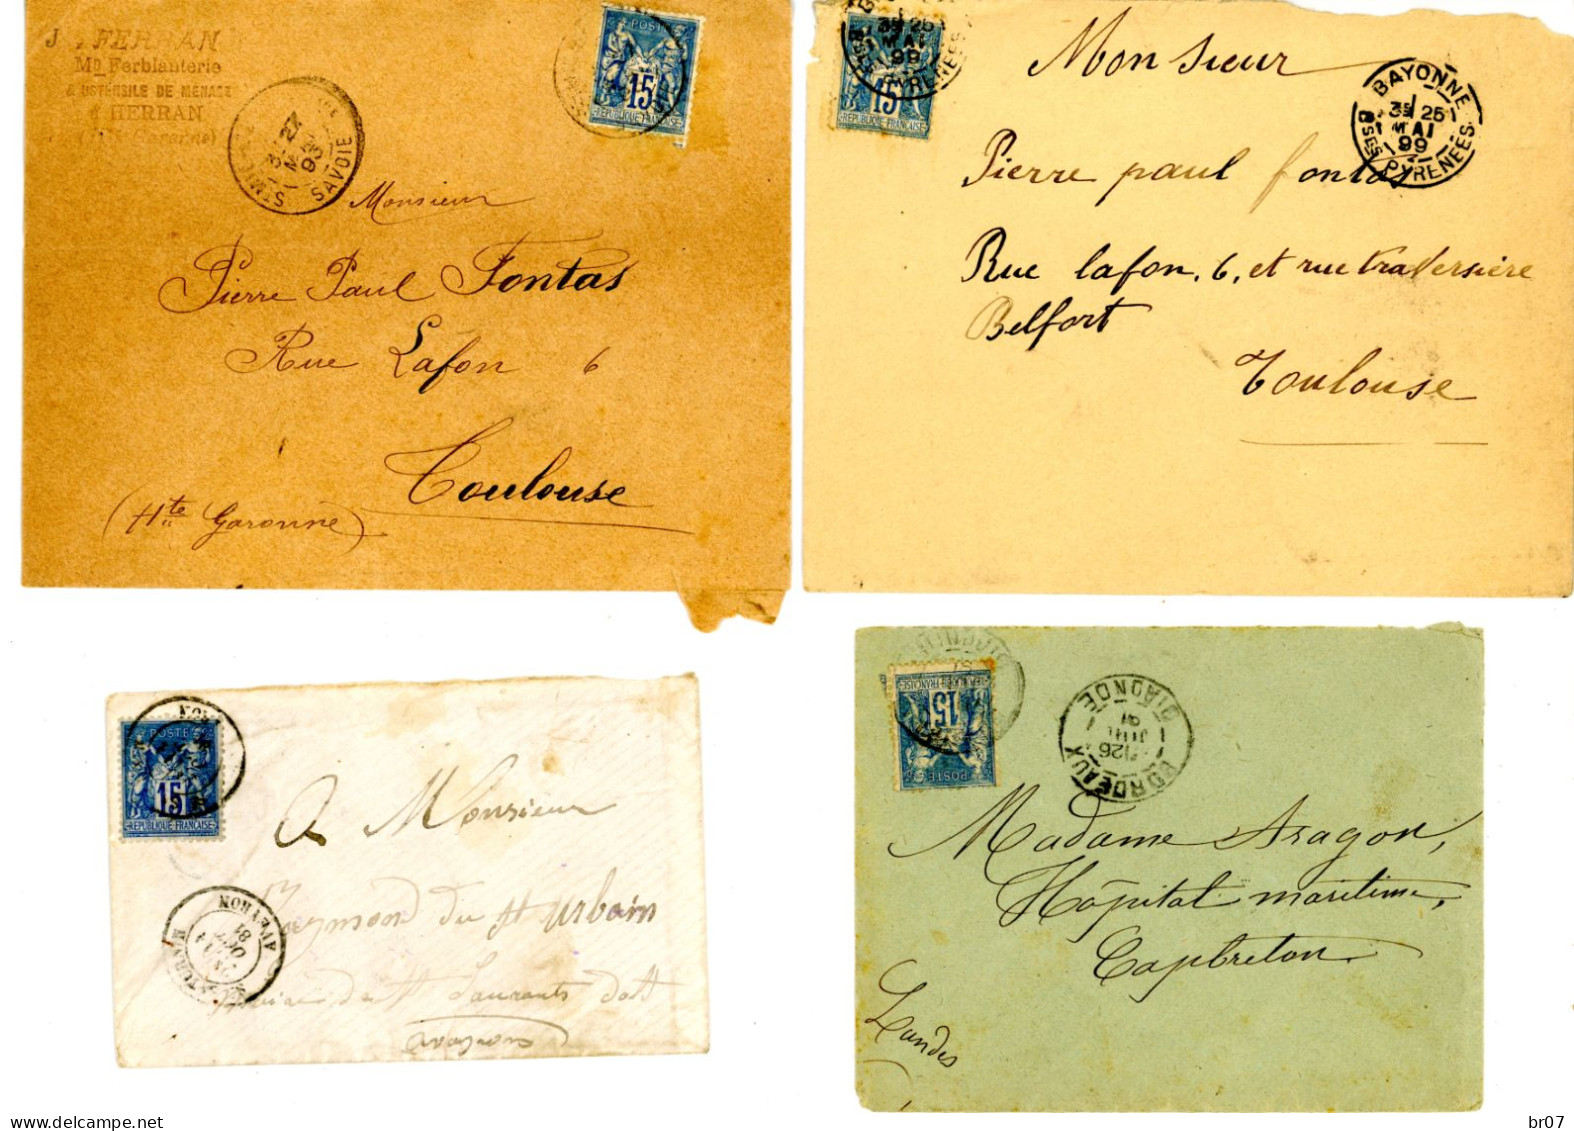 J. FERRAN
Md Ferblanterie
& USTENSILE DE MÉNAGE
à HERRAN
SAVOIE
27
93
POSTE
15
RÉPUBLIQUE FRANÇAISE
Monsieur
Pierre Paul Fontas
Rue Lafon 6
Toulouse
(Hte Garonne)
25
MAI
99
PYRENEES
15
REPUBLIQUE FRANÇAISE
BAYONNE
3E 25
MAI
99
BSES PYRENEES
Monsieur
Pierre paul fontas
Rue lafon, 6, et rue traversière
Belfort
Toulouse
POSTES
15
REPUBLIQUE FRANÇAISE
AVEYRON
OCT
81
A Monsieur
Raymond du St Urbain
St Laurents dolt
Aveyron
REPUBLIQUE FRANÇAISE
15
POSTES
BORDEAUX
GIRONDE
26
JUIL
91
Madame Aragon,
Hôpital maritime,
Capbreton
Landes
delcampe.net
br07